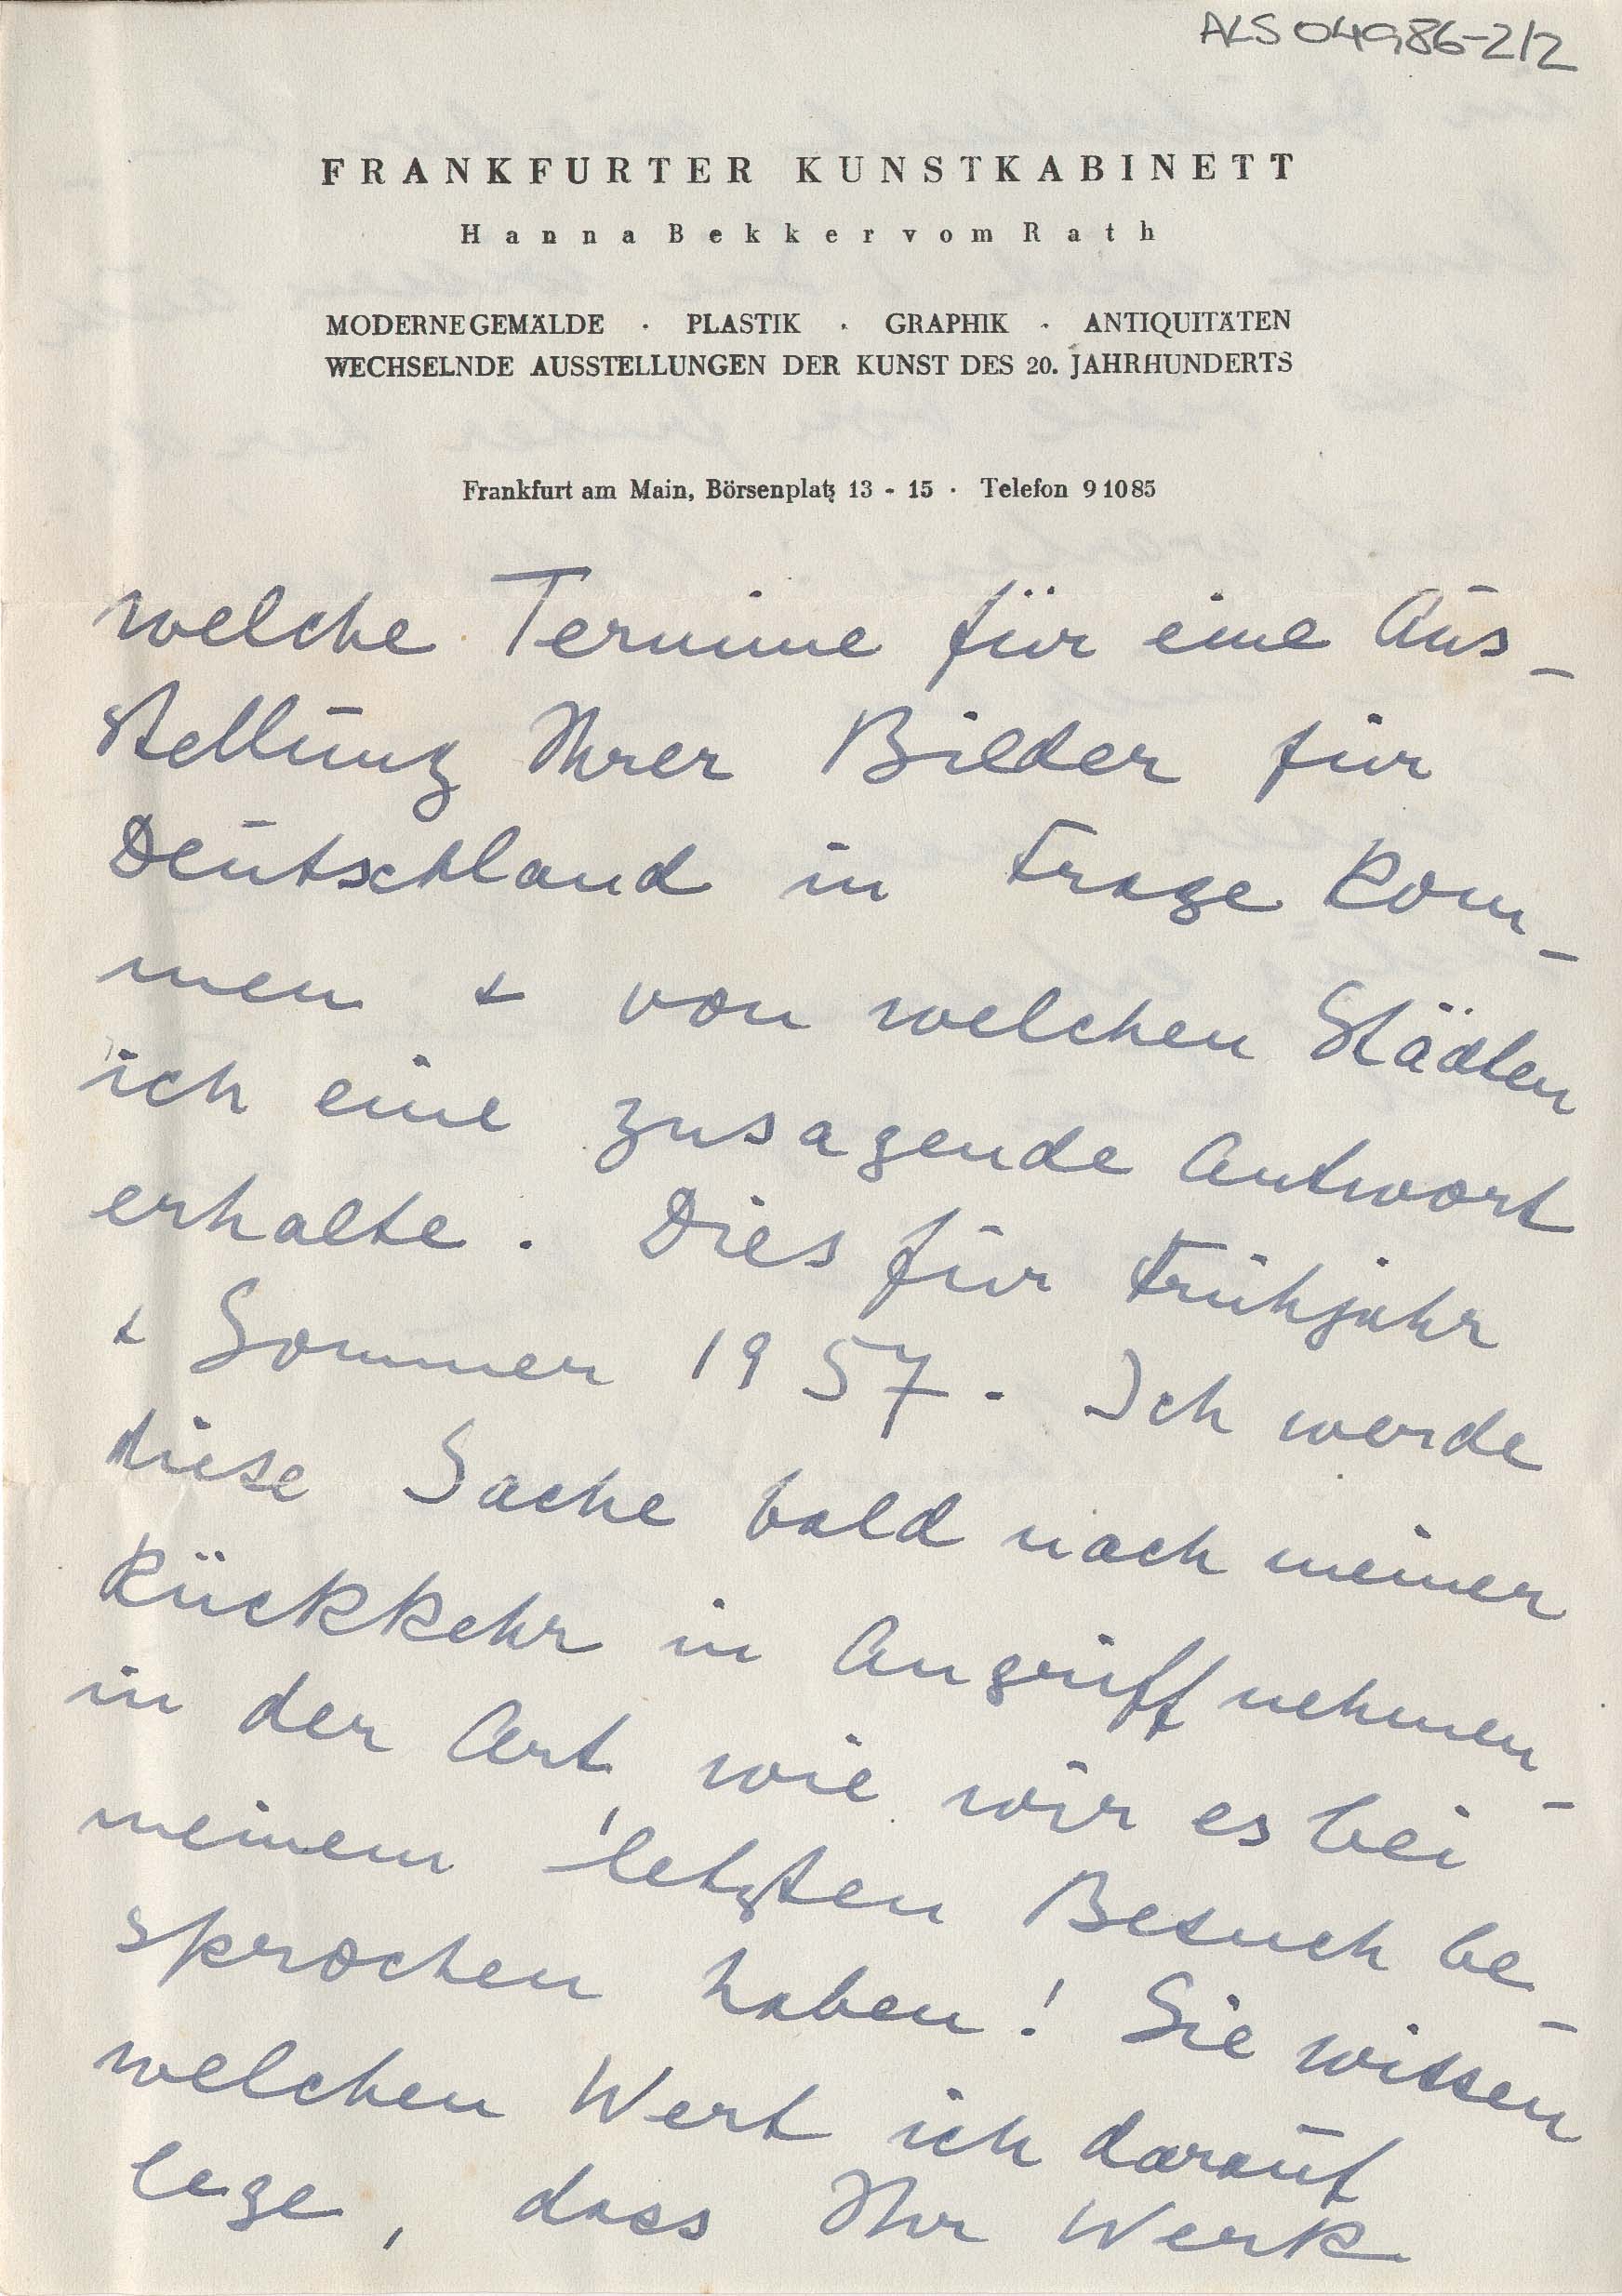 ALS 04986-2/2
FRANKFURTER KUNSTKABINETT
Hanna Bekker vom Rath
MODERNE GEMÄLDE · PLASTIK · GRAPHIK · ANTIQUITÄTEN
WECHSELNDE AUSSTELLUNGEN DER KUNST DES 20. JAHRHUNDERTS
Frankfurt am Main, Börsenplatz 13 - 15 · Telefon 91085
welche Termine für eine Aus-
stellung Ihrer Bilder für
Deutschland in Frage kom-
men & von welchen Städten
ich eine zusagende Antwort
erhalte. Dies für Frühjahr
& Sommer 1957. Ich werde
diese Sache bald nach meiner
Rückkehr in Angriff nehmen -
in der Art wie wir es bei
meinem letzten Besuch be-
sprochen haben! Sie wissen
welchen Wert ich darauf
lege, dass Ihr Werk